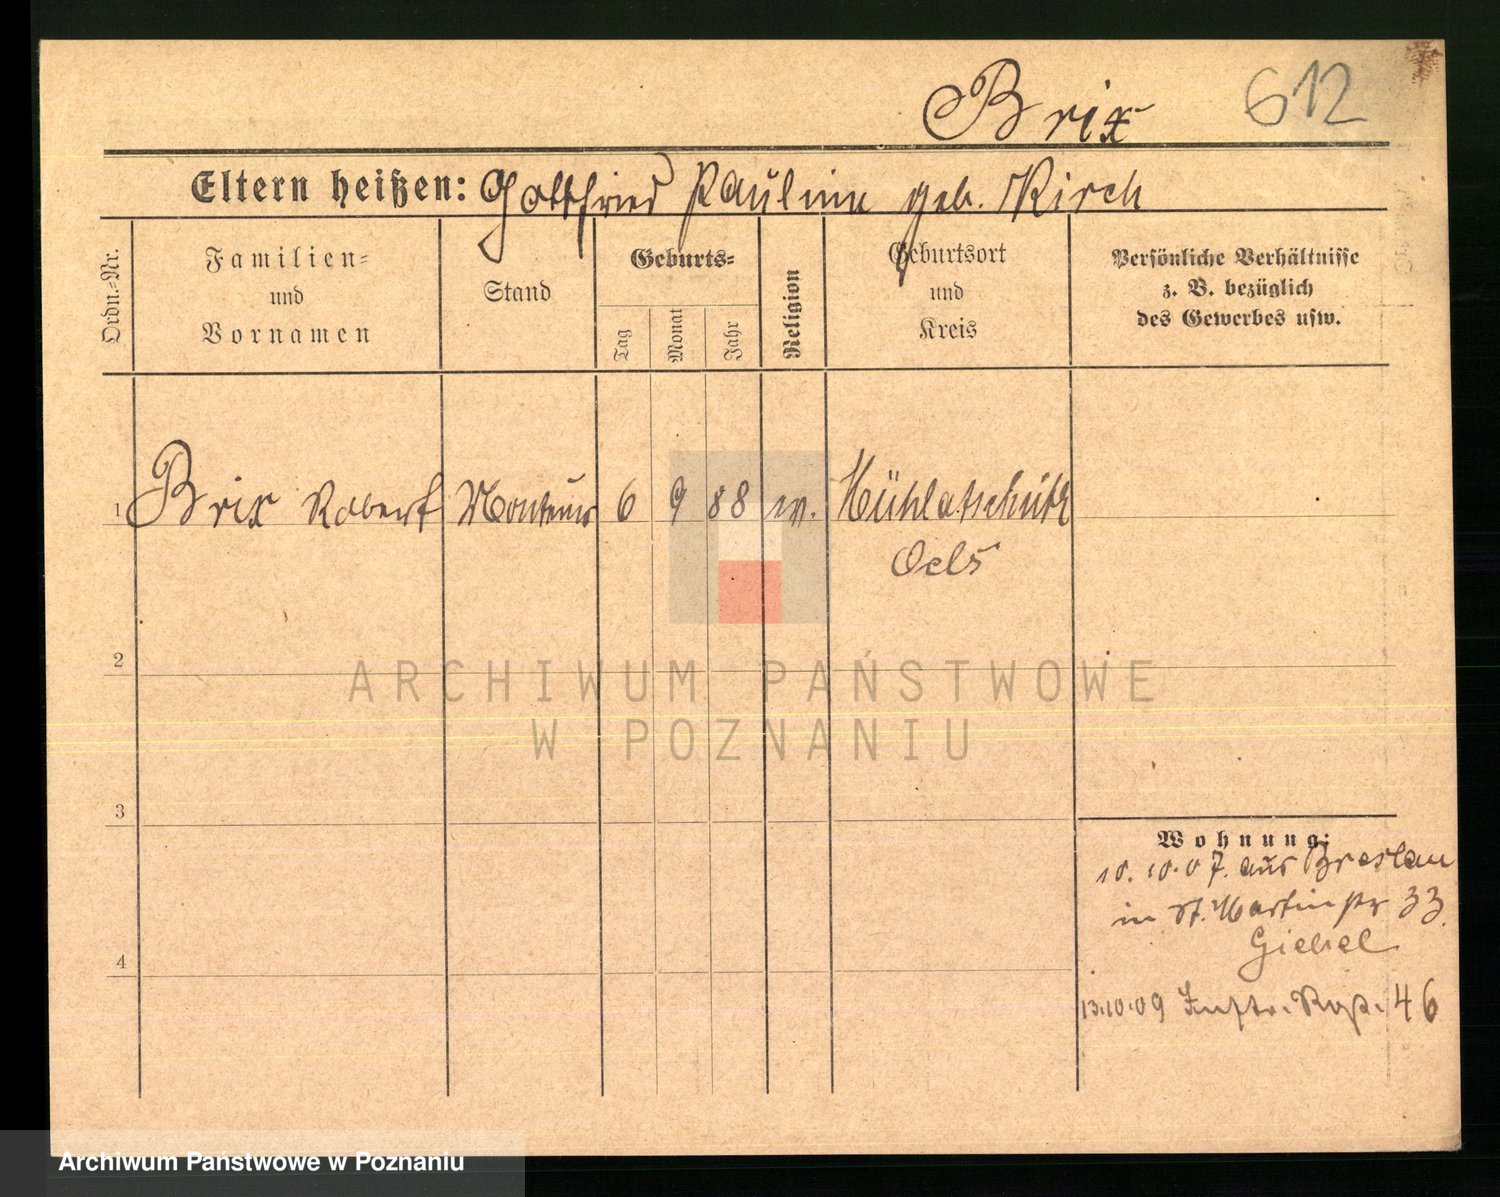 Brix 612
Eltern heißen: Gottfried Pauline geb. Kirch
Ordn.-Nr.
Familien-
und
Vornamen
Stand
Geburts-
Tag
Monat
Jahr
Religion
Geburtsort
und
Kreis
Persönliche Verhältnisse
z. B. bezüglich
des Gewerbes usw.
1 Brix Robert Monteur 6 9 88 ev. Mühlatschütz
Oels
2
3
4
Wohnung:
10.10.07. aus Breslau
in St. Martinstr 33.
Giebel
13.10.09 Inftr. Rgt. 46
ARCHIWUM PAŃSTWOWE
W POZNANIU
Archiwum Państwowe w Poznaniu